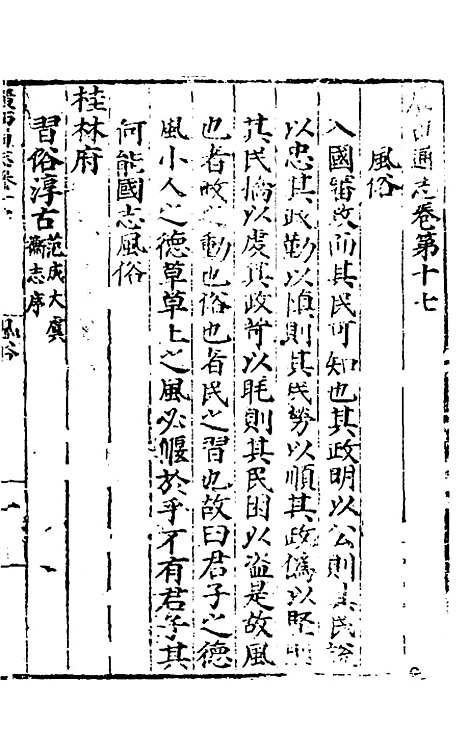 西通志卷第十七
風俗
入國審政而其民可知也其政明以公則其民說
以忠其政勤以慎則其民勞以順其政僞以堅則
其民憍以虔其政苛以眊則其民困以盗是故風
也者政之動也俗也者民之習也故曰君子之德
風小人之德草草上之風必偃於乎不有君子其
何能國志風俗
桂林府
習俗淳古 范成大虞衡志序
廣西通志卷十七
風俗